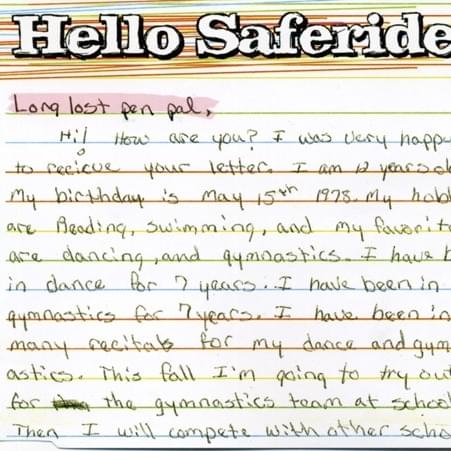 Hello Saferide
Long lost pen pal,
Hi! How are you? I was very happy
to recieve your letter. I am 12 years ol
My birthday is May 15th 1978. My hob
are Reading, swimming, and my favorit
are dancing, and gymnastics. I have b
in dance for 7 years. I have been in
gymnastics for 7 years. I have been in
many recitals for my dance and gym
astics. This fall I'm going to try out
for the gymnastics team at school
Then I will compete with other scho